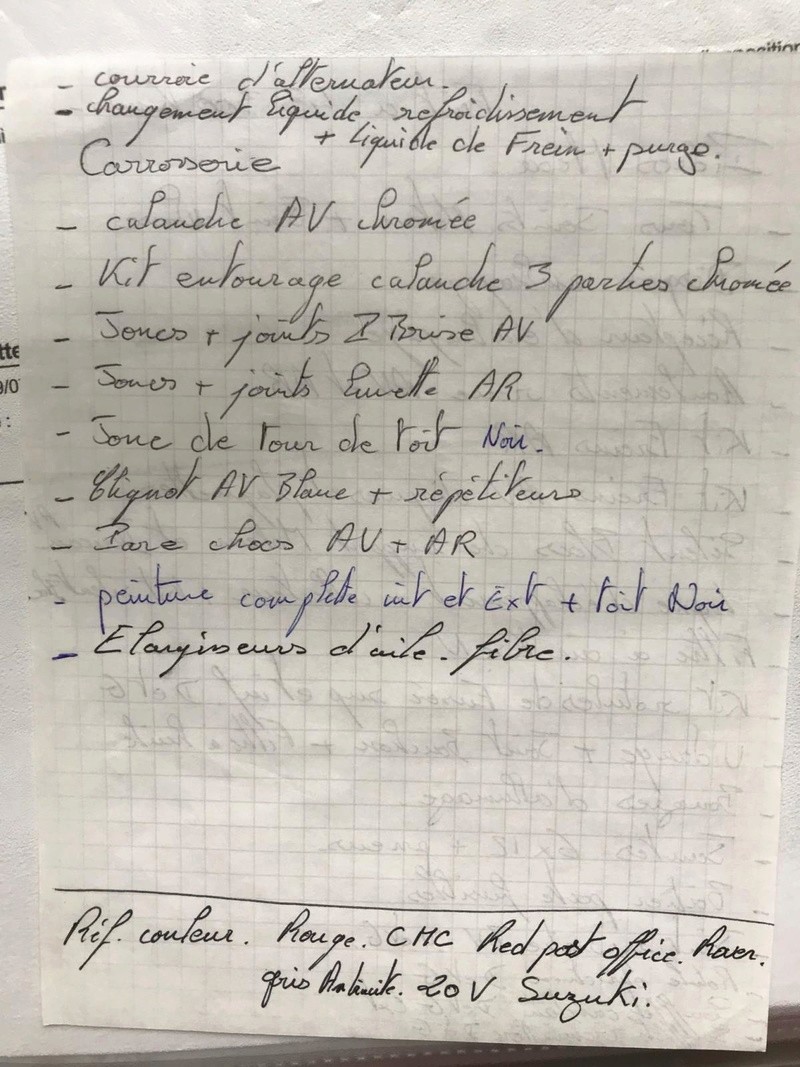 - courroie d'alternateur.
- changement liquide refroidissement
+ liquide de Frein + purge.
Carrosserie
- calandre AV chromée
- Kit entourage calandre 3 parties chromée
- Joncs + joints P Brise AV
- Joncs + joints lunette AR
- Jonc de tour de toit Noir.
- Clignot AV Blanc + répétiteurs
- Pare chocs AV + AR
- peinture complète int et Ext + toit Noir
- Elargisseurs d'aile. fibre.
Réf. couleur. Rouge. CMC Red post office. Rover.
gris Antracite. 20V Suzuki.